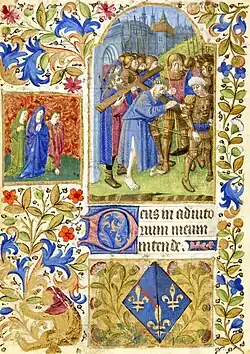 Deus in adiuto
rium meum
intende.